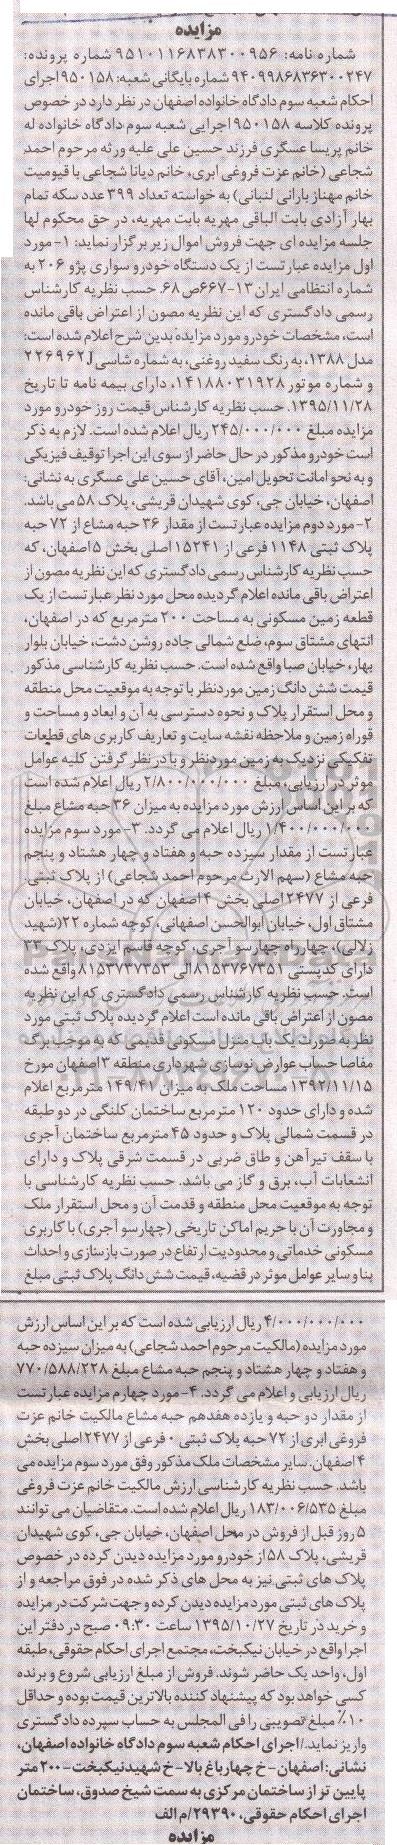 مزایده
شماره نامه: ۹۵۱۰۱۱۶۸۳۸۳۰۰۹۵۶ شماره پرونده:
۹۴۰۹۹۸۶۸۳۶۳۰۰۲۴۷ شماره بایگانی شعبه: ۹۵۰۱۵۸ اجرای
احکام شعبه سوم دادگاه خانواده اصفهان در نظر دارد در خصوص
پرونده کلاسه ۹۵۰۱۵۸ اجرایی شعبه سوم دادگاه خانواده له
خانم پریسا عسگری فرزند حسین علی علیه ورثه مرحوم احمد
شجاعی (خانم عزت فروغی ابری، خانم دیانا شجاعی با قیومیت
خانم مهناز بارانی لنبانی) به خواسته تعداد ۳۹۹ عدد سکه تمام
بهار آزادی بابت الباقی مهریه بابت مهریه، در حق محکوم لها
جلسه مزایده ای جهت فروش اموال زیر برگزار نماید: ۱-مورد
اول مزایده عبارتست از یک دستگاه خودرو سواری پژو ۲۰۶ به
شماره انتظامی ایران ۱۳-۶۶۷ص۶۸. حسب نظریه کارشناس
رسمی دادگستری که این نظریه مصون از اعتراض باقی مانده
است، مشخصات خودرو مورد مزایده بدین شرح اعلام شده است:
مدل ۱۳۸۸، به رنگ سفید روغنی، به شماره شاسی J۲۲۶۹۶۲
و شماره موتور ۱۴۱۸۸۰۳۱۹۲۸، دارای بیمه نامه تا تاریخ
۱۳۹۵/۱۱/۲۸. حسب نظریه کارشناس قیمت روز خودرو مورد
مزایده مبلغ ۲۴۵/۰۰۰/۰۰۰ ریال اعلام شده است. لازم به ذکر
است خودرو مذکور در حال حاضر از سوی این اجرا توقیف فیزیکی
و به نحو امانت تحویل امین، آقای حسین علی عسگری به نشانی:
اصفهان، خیابان جی، کوی شهیدان قریشی، پلاک ۵۸ می باشد.
۲-مورد دوم مزایده عبارتست از مقدار ۳۶ حبه مشاع از ۷۲ حبه
پلاک ثبتی ۱۱۴۸ فرعی از ۱۵۲۴۱ اصلی بخش ۵ اصفهان، که
حسب نظریه کارشناس رسمی دادگستری که این نظریه مصون از
اعتراض باقی مانده اعلام گردیده محل مورد نظر عبارتست از یک
قطعه زمین مسکونی به مساحت ۲۰۰ مترمربع که در اصفهان،
انتهای مشتاق سوم، ضلع شمالی جاده روشن دشت، خیابان بلوار
بهار، خیابان صبا واقع شده است. حسب نظریه کارشناسی مذکور
قیمت شش دانگ زمین مورد نظر با توجه به موقعیت محل منطقه
و محل استقرار پلاک و نحوه دسترسی به آن و ابعاد و مساحت و
قواره زمین و ملاحظه نقشه سایت و تعاریف کاربری های قطعات
تفکیکی نزدیک به زمین مورد نظر و با در نظر گرفتن کلیه عوامل
موثر در ارزیابی، مبلغ ۲/۸۰۰/۰۰۰/۰۰۰ ریال اعلام شده است
که بر این اساس ارزش مورد مزایده به میزان ۳۶ حبه مشاع مبلغ
۱/۴۰۰/۰۰۰/۰۰۰ ریال اعلام می گردد. ۳-مورد سوم مزایده
عبارتست از مقدار سیزده حبه و هفتاد و چهار هشتاد و پنجم
حبه مشاع (سهم الارث مرحوم احمد شجاعی) از پلاک ثبتی
فرعی از ۲۴۷۷ اصلی بخش ۴ اصفهان که در اصفهان، خیابان
مشتاق اول، خیابان ابوالحسن اصفهانی، کوچه شماره ۲۲(شهید
زلالی)، چهار راه چهارسو آجری، کوچه قاسم ایزدی، پلاک ۳۳
دارای کدپستی ۸۱۵۳۷۶۷۳۵۱ الی ۸۱۵۳۷۳۷۳۵۳ واقع شده
است. حسب نظریه کارشناس رسمی دادگستری که این نظریه
مصون از اعتراض باقی مانده است اعلام گردیده پلاک ثبتی مورد
نظر به صورت یک باب منزل مسکونی قدیمی که به موجب برگ
مفاصا حساب عوارض نوسازی شهرداری منطقه ۳ اصفهان مورخ
۱۳۹۲/۱۱/۱۵ مساحت ملک به میزان ۱۴۹/۴۱ مترمربع اعلام
شده و دارای حدود ۱۲۰ مترمربع ساختمان کلنگی در دو طبقه
در قسمت شمالی پلاک و حدود ۴۵ مترمربع ساختمان آجری
با سقف تیرآهن و طاق ضربی در قسمت شرقی پلاک و دارای
انشعابات آب، برق و گاز می باشد. حسب نظریه کارشناسی با
توجه به موقعیت محل منطقه و قدمت آن و محل استقرار ملک
و مجاورت آن با حریم اماکن تاریخی (چهارسو آجری) با کاربری
مسکونی خدماتی و محدودیت ارتفاع در صورت بازسازی و احداث
بنا و سایر عوامل موثر در قضیه، قیمت شش دانگ پلاک ثبتی مبلغ
۴/۰۰۰/۰۰۰/۰۰۰ ریال ارزیابی شده است که بر این اساس ارزش
مورد مزایده (مالکیت مرحوم احمد شجاعی) به میزان سیزده حبه
و هفتاد و چهار هشتاد و پنجم حبه مشاع مبلغ ۷۷۰/۵۸۸/۲۲۸
ریال ارزیابی و اعلام می گردد. ۴-مورد چهارم مزایده عبارتست
از مقدار دو حبه و یازده هفدهم حبه مشاع مالکیت خانم عزت
فروغی ابری از ۷۲ حبه پلاک ثبتی ۰ فرعی از ۲۴۷۷ اصلی بخش
۴ اصفهان. سایر مشخصات ملک مذکور وفق مورد سوم مزایده می
باشد. حسب نظریه کارشناسی ارزش مالکیت خانم عزت فروغی
مبلغ ۱۸۳/۰۰۶/۵۳۵ ریال اعلام شده است. متقاضیان می توانند
۵ روز قبل از فروش در محل اصفهان، خیابان جی، کوی شهیدان
قریشی، پلاک ۵۸ از خودرو مورد مزایده دیدن کرده در خصوص
پلاک های ثبتی نیز به محل های ذکر شده در فوق مراجعه و از
پلاک های ثبتی مورد مزایده دیدن کرده و جهت شرکت در مزایده
و خرید در تاریخ ۱۳۹۵/۱۰/۲۷ ساعت ۰۹:۳۰ صبح در دفتر این
اجرا واقع در خیابان نیکبخت، مجتمع اجرای احکام حقوقی، طبقه
اول، واحد یک حاضر شوند. فروش از مبلغ ارزیابی شروع و برنده
کسی خواهد بود که پیشنهاد کننده بالاترین قیمت بوده و حداقل
۱۰٪ مبلغ تصویبی را فی المجلس به حساب سپرده دادگستری
واریز نماید./اجرای احکام شعبه سوم دادگاه خانواده اصفهان،
نشانی: اصفهان-خ چهارباغ بالا-خ شهید نیکبخت-۲۰۰ متر
پایین تر از ساختمان مرکزی به سمت شیخ صدوق، ساختمان
اجرای احکام حقوقی، ۲۹۳۹۰/م الف
مزایده